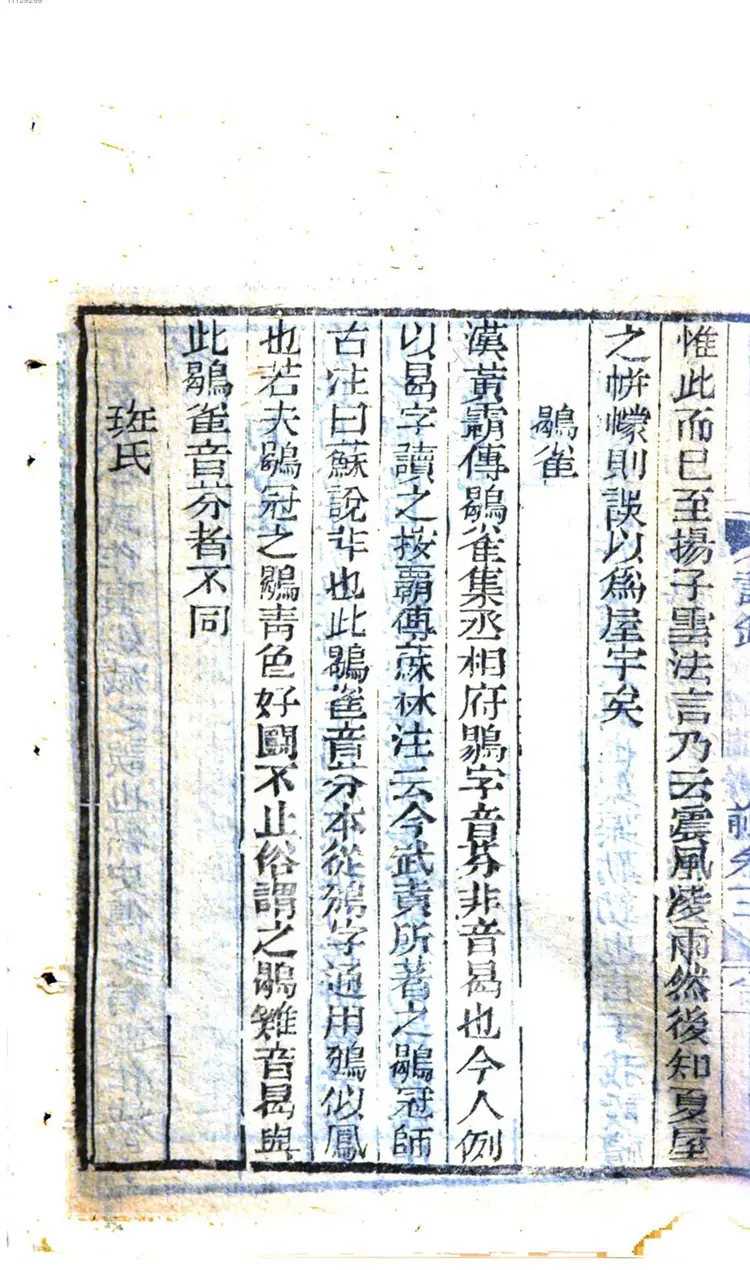 惟此而已至揚子雲法言乃云震風凌雨然後知夏屋
之帡幪則誤以爲屋宇矣
鶡雀
漢黃霸傳鶡雀集丞相府鶡字音芬非音曷也今人例
以曷字讀之按霸傳蘇林注云今武賁所著之鶡冠師
古注曰蘇說非也此鶡雀音芬本從鳻字通用鳻似鳳
也若夫鶡冠之鶡靑色好鬭不止俗謂之鶡雞音曷與
此鶡雀音芬者不同
班氏